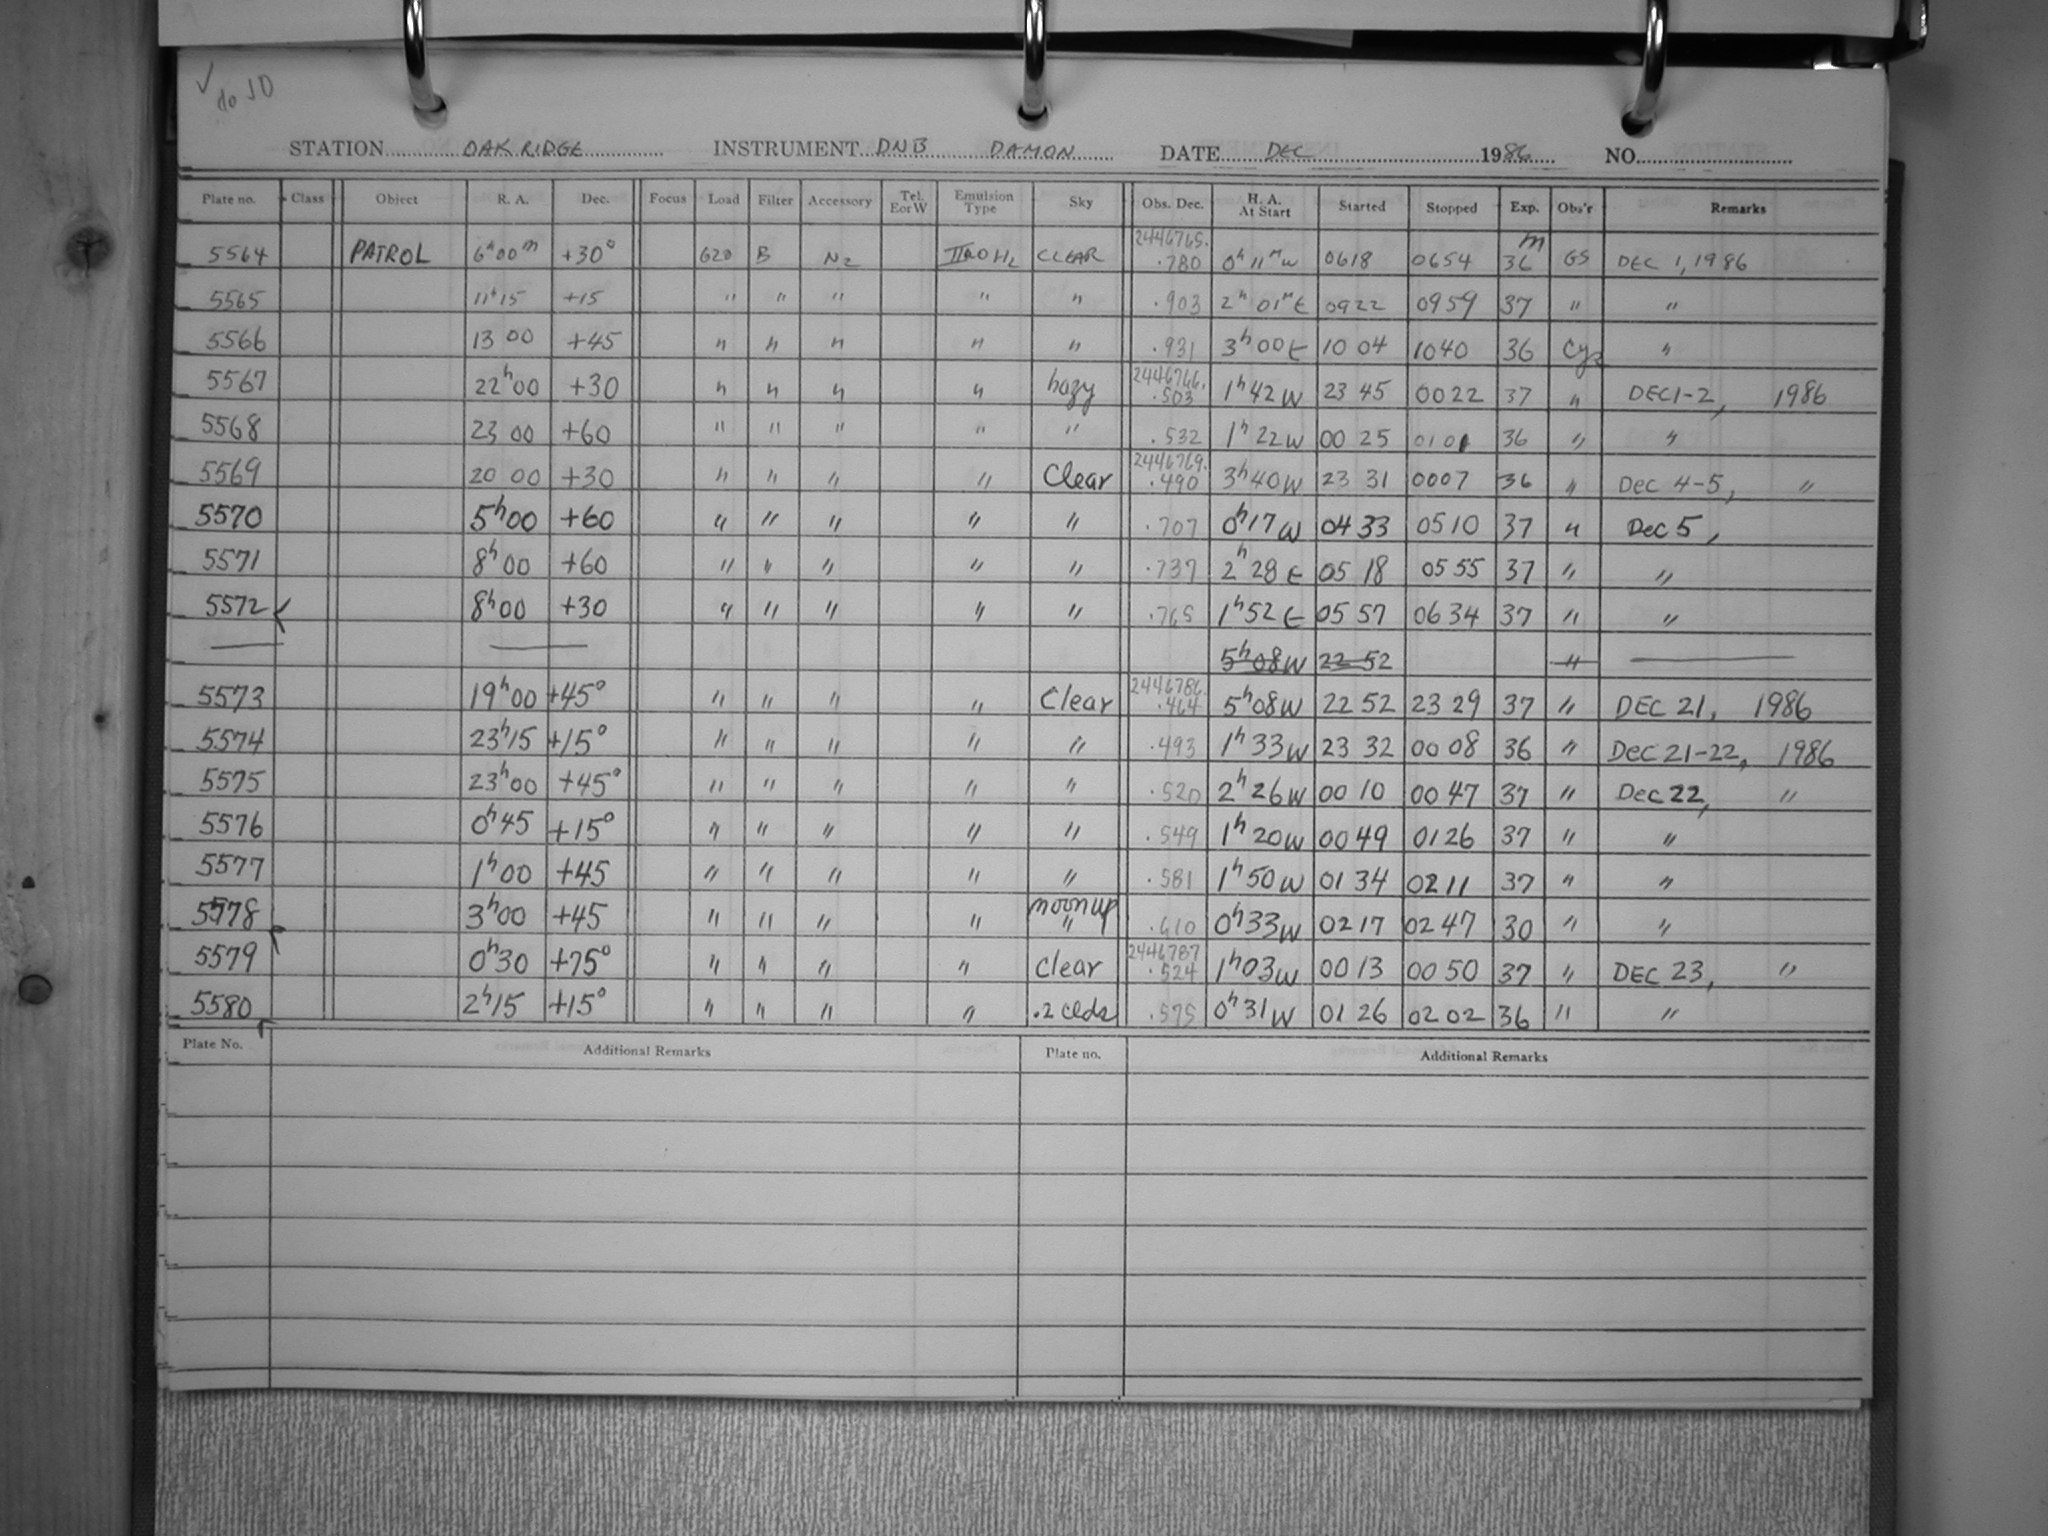 ✓ do JD
STATION OAK RIDGE INSTRUMENT DNB DAMON DATE DEC 1986 NO.
Plate no. Class Object R. A. Dec. Focus Load Filter Accessory Tel. E or W Emulsion Type Sky Obs. Dec. H. A. At Start Started Stopped Exp. Obs'r Remarks
5564 PATROL 6h00m +30° 620 B N2 IIaO H2 CLEAR 2446765. .780 0h11m W 0618 0654 36m GS DEC 1, 1986
5565 11h15 +15 " " " " " .903 2h01m E 0922 0959 37 " "
5566 13 00 +45 " " " " " .931 3h00 E 10 04 1040 36 "
5567 22h00 +30 " " " " hazy 2446766. .503 1h42 W 23 45 00 22 37 " DEC 1-2, 1986
5568 23 00 +60 " " " " " .532 1h22 W 00 25 0101 36 " "
5569 20 00 +30 " " " " Clear 2446769. .490 3h40 W 23 31 0007 36 " Dec 4-5, "
5570 5h00 +60 " " " " " .707 0h17 W 04 33 05 10 37 " Dec 5,
5571 8h00 +60 " " " " " .737 2h28 E 05 18 05 55 37 " "
5572 8h00 +30 " " " " " .765 1h52 E 05 57 06 34 37 " "
5h08 W 22 52 "
5573 19h00 +45° " " " " Clear 2446786. .464 5h08 W 22 52 23 29 37 " DEC 21, 1986
5574 23h15 +15° " " " " " .493 1h33 W 23 32 00 08 36 " Dec 21-22, 1986
5575 23h00 +45° " " " " " .520 2h26 W 00 10 00 47 37 " Dec 22, "
5576 0h45 +15° " " " " " .549 1h20 W 00 49 01 26 37 " "
5577 1h00 +45 " " " " " .581 1h50 W 01 34 02 11 37 " "
5578 3h00 +45 " " " " moon up " .610 0h33 W 02 17 02 47 30 " "
5579 0h30 +75° " " " " Clear 2446787 .524 1h03 W 00 13 00 50 37 " DEC 23, "
5580 2h15 +15° " " " " .2 clds .575 0h31 W 01 26 02 02 36 " "
Plate No. Additional Remarks Plate no. Additional Remarks